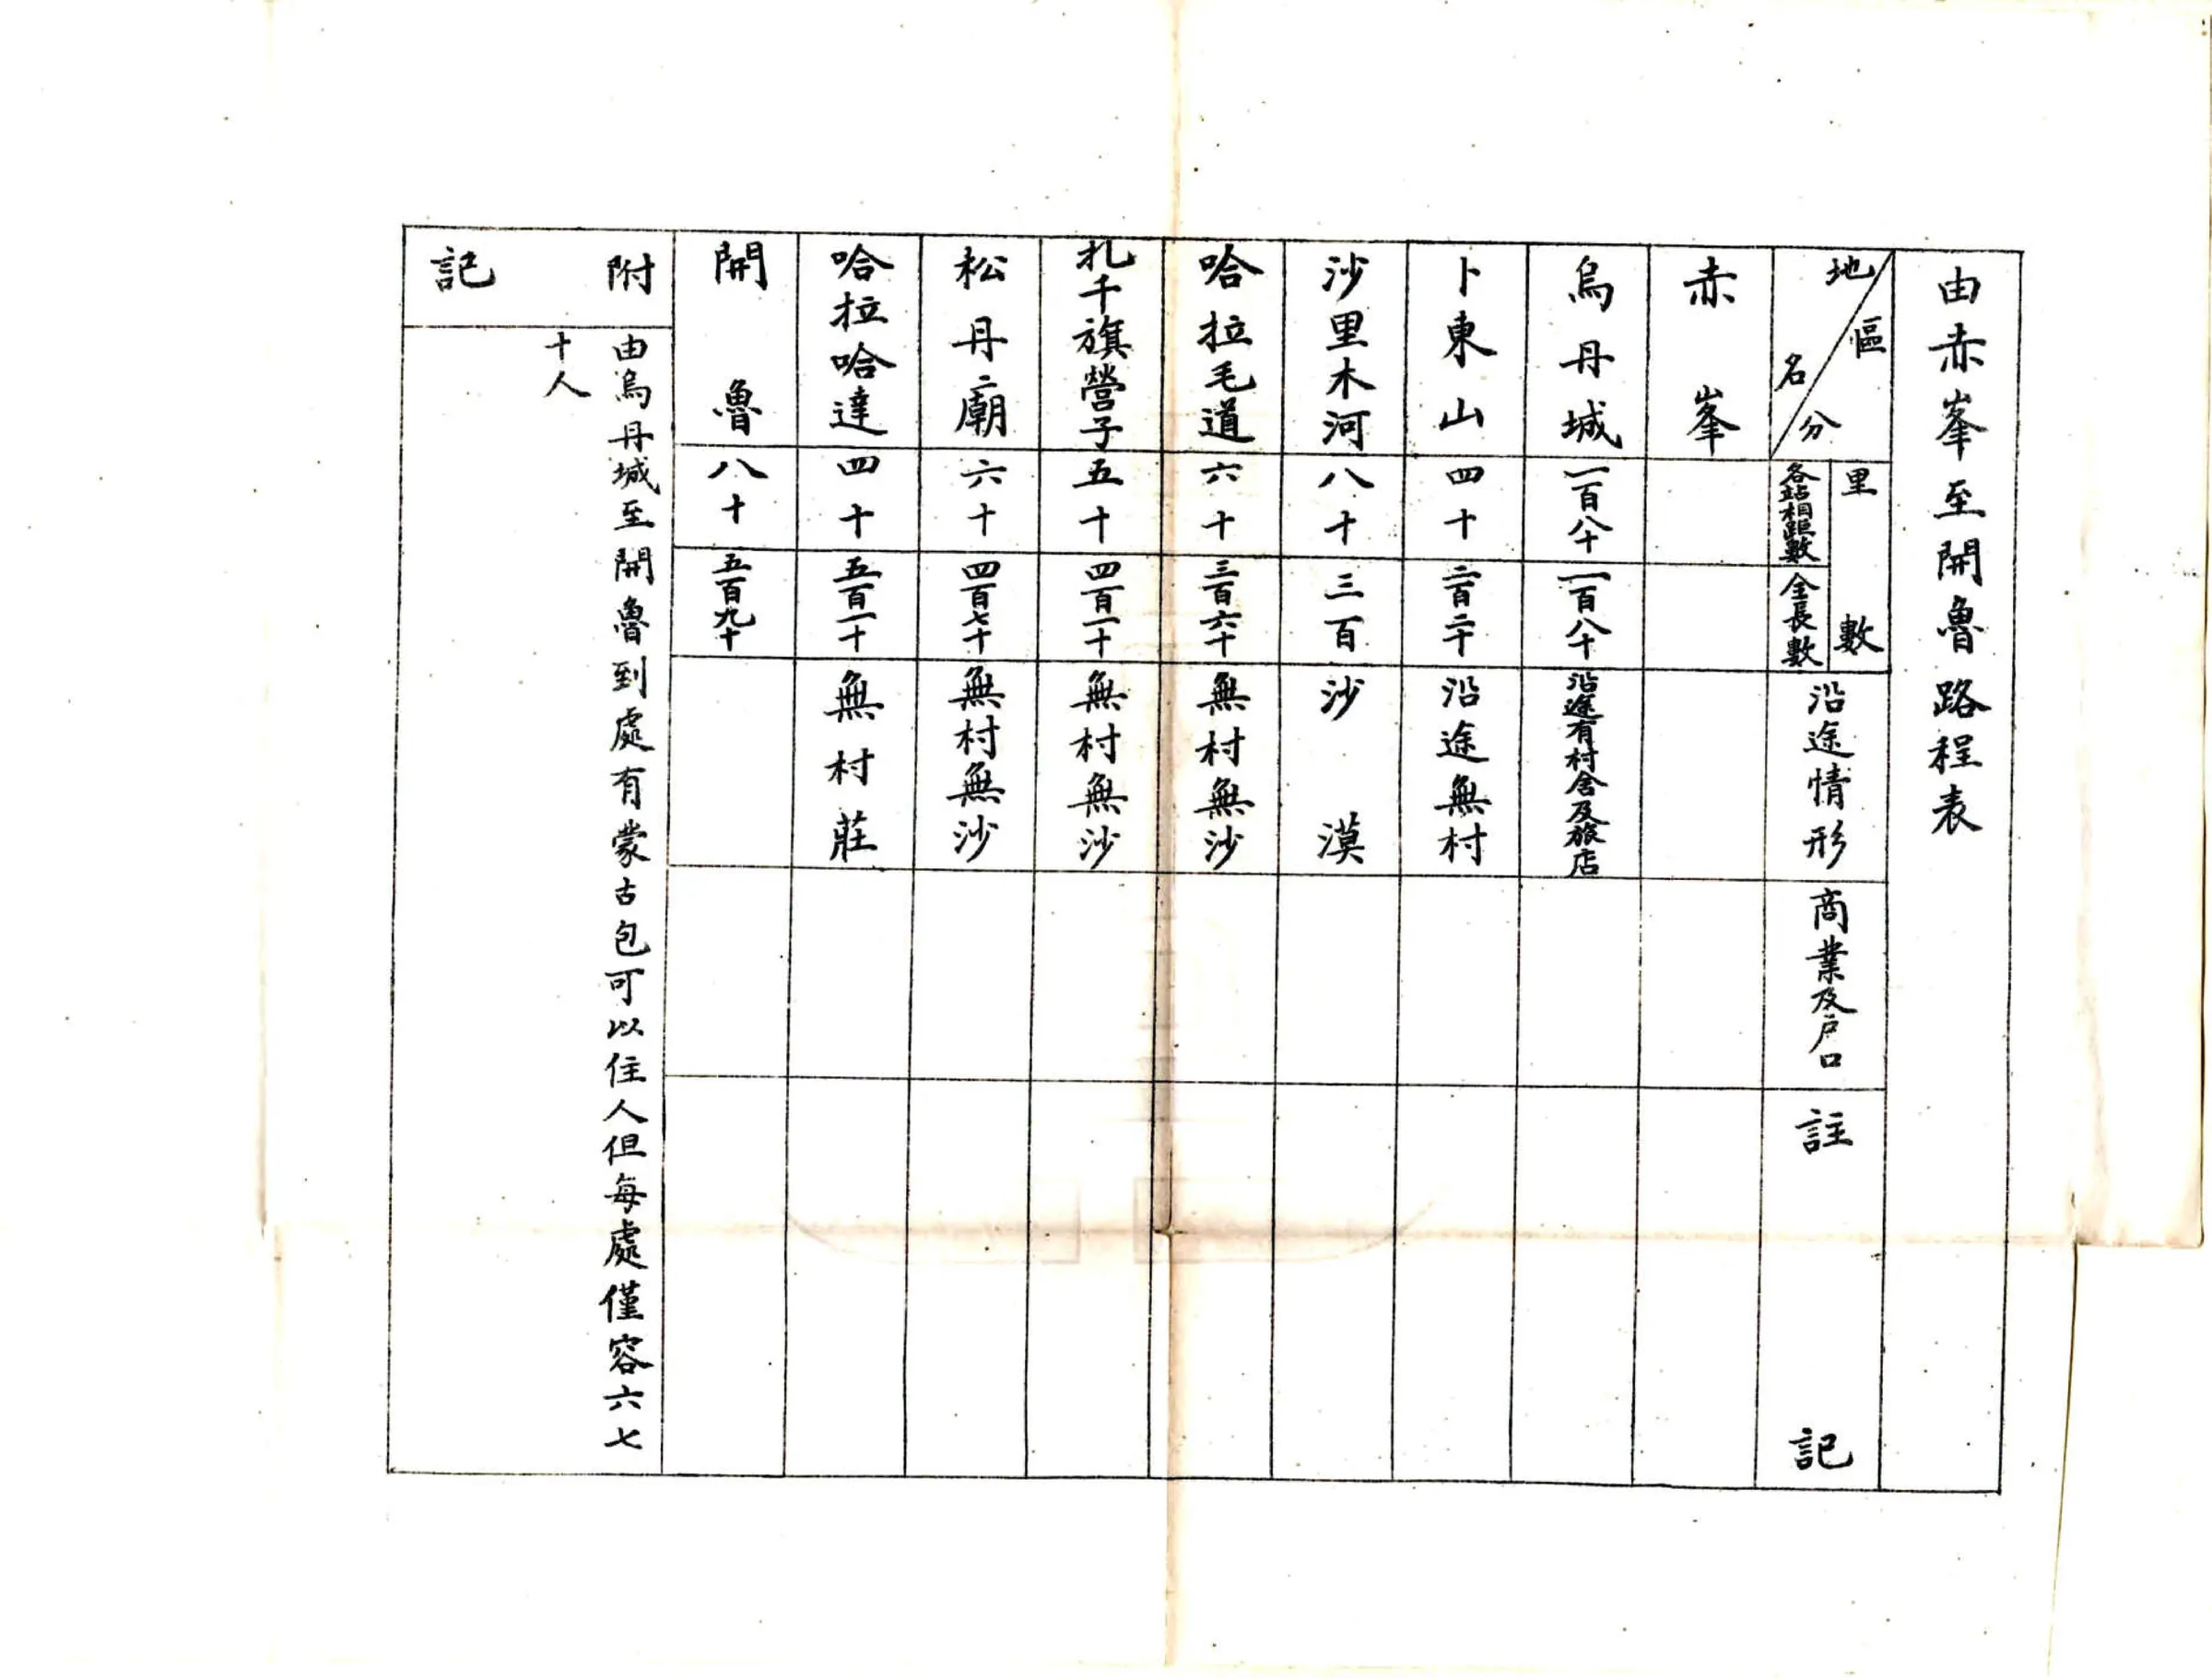 由赤峯至開魯路程表
地名 區分
里數
各站相距數
全長數
沿途情形
商業及戶口
註記
赤峯
烏丹城
一百八十
一百八十
沿途有村舍及旅店
卜東山
四十
二百二十
沿途無村
沙里木河
八十
三百
沙漠
哈拉毛道
六十
三百六十
無村無沙
扎千旗營子
五十
四百一十
無村無沙
松丹廟
六十
四百七十
無村無沙
哈拉哈達
四十
五百一十
無村莊
開魯
八十
五百九十
附記
由烏丹城至開魯到處有蒙古包可以住人但每處僅容六七
十人